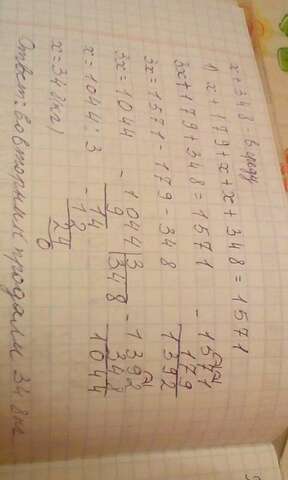 x+348 -
1) x+179+x+x+348=1571
3x+179+348=1571
3x=1571-179-348
3x=1044
x=1044:3
x=348(кг)
- 1571
179
1392
- 1392
348
1044
- 1044 3
9 348
- 14
12
24
0
Ответ: во вторник продали 348кг